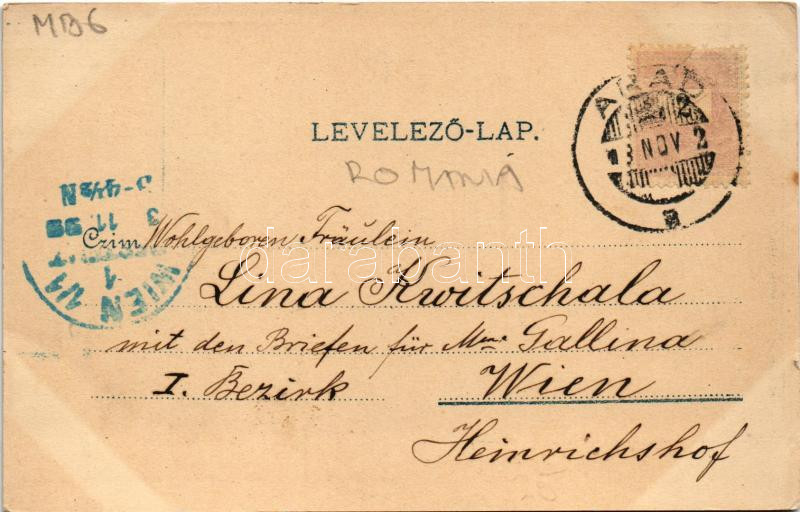 MB6
ARAD
2
3 NOV 2
a
LEVELEZŐ-LAP.
ROMANIA
WIEN 1/1
1
3 11 98
Czim Wohlgeboren Fräulein
Lina Kwitschala
mit den Briefen für Mme Gallina
I. Bezirk Wien
Heinrichshof
darabanth